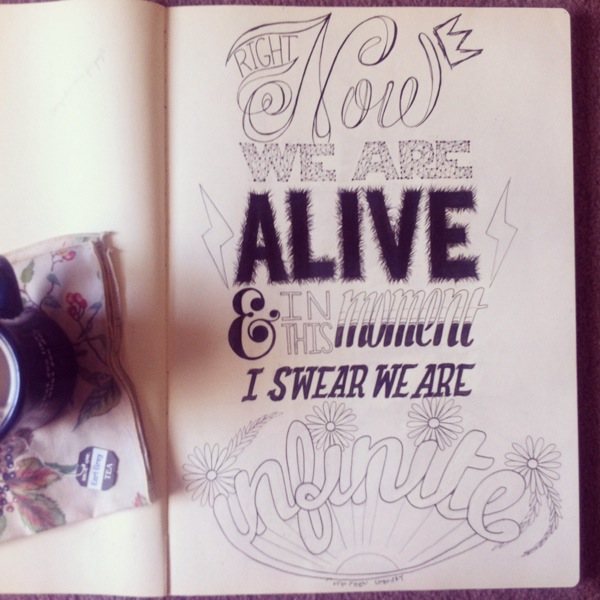 RIGHT Now
WE ARE
ALIVE
& IN THIS moment
I SWEAR WE ARE
infinite
Earl Grey
TEA